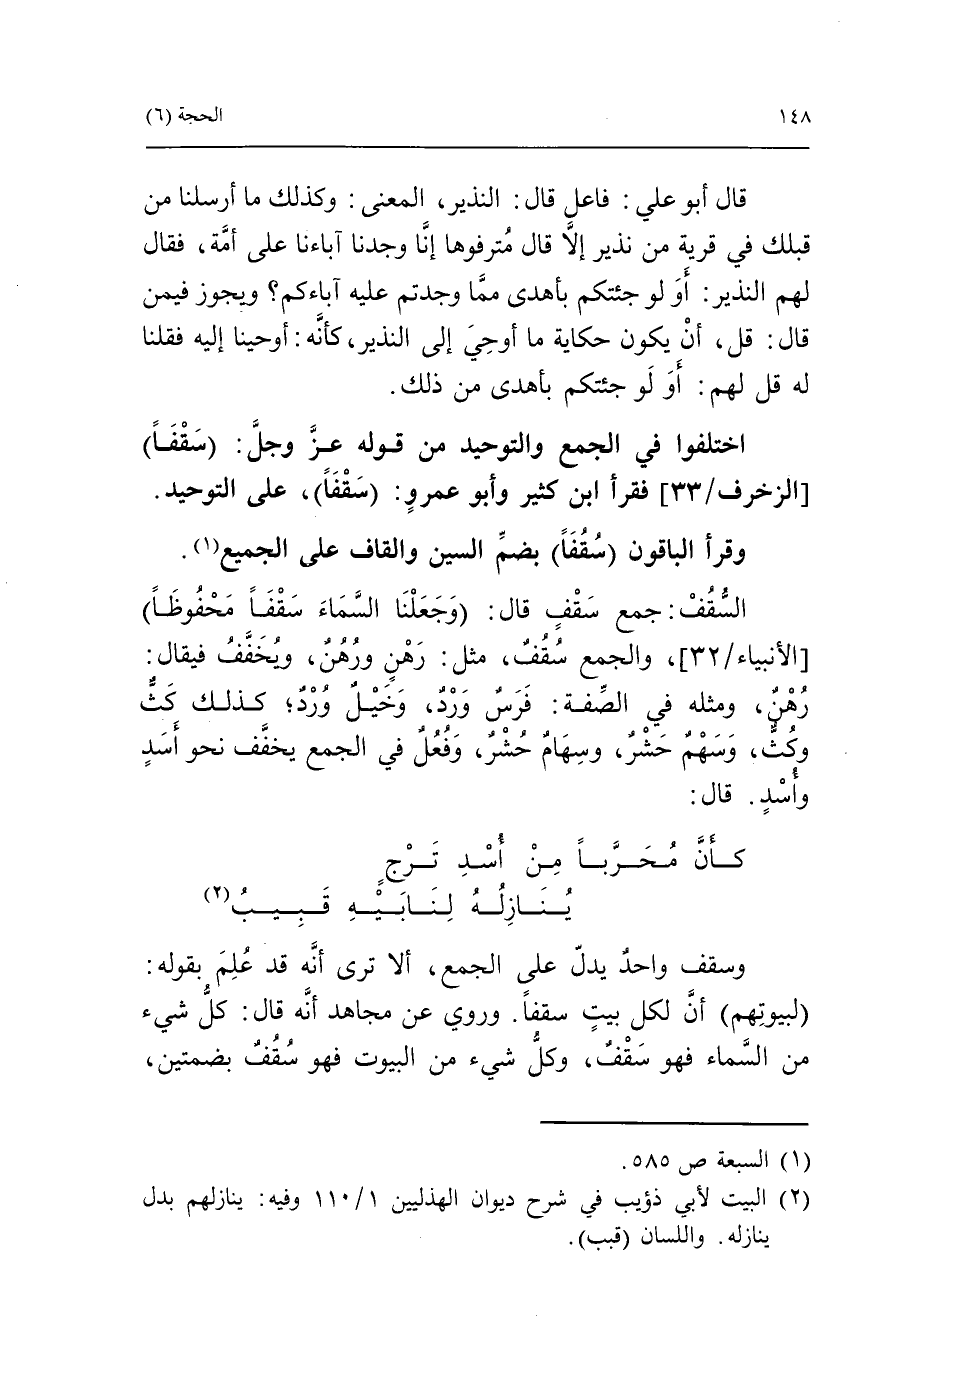 ١٤٨
الحجة (٦)
قال أبو علي: فاعل قال: النذير، المعنى: وكذلك ما أرسلنا من
قبلك في قرية من نذير إلاَّ قال مُترفوها إنَّا وجدنا آباءنا على أمَّة، فقال
لهم النذير: أَوَ لو جئتكم بأهدى ممَّا وجدتم عليه آباءكم؟ ويجوز فيمن
قال: قل، أنْ يكون حكاية ما أوحِيَ إلى النذير، كأنَّه: أوحينا إليه فقلنا
له قل لهم: أَوَ لَو جئتكم بأهدى من ذلك.
اختلفوا في الجمع والتوحيد من قوله عزَّ وجلَّ: (سَقْفَاً)
[الزخرف/٣٣] فقرأ ابن كثير وأبو عمروٍ: (سَقْفَاً)، على التوحيد.
وقرأ الباقون (سُقُفَاً) بضمِّ السين والقاف على الجميع(١).
السُّقُفْ: جمع سَقْفٍ قال: (وَجَعَلْنَا السَّمَاءَ سَقْفَاً مَحْفُوظَاً)
[الأنبياء/٣٢]، والجمع سُقُفٌ، مثل: رَهْنٍ ورُهُنٌ، ويُخَفَّفُ فيقال:
رُهْنٌ، ومثله في الصِّفة: فَرَسٌ وَرْدٌ، وَخَيْلٌ وُرْدٌ؛ كذلك كَثٌّ
وكُثٌّ، وَسَهْمٌ حَشْرٌ، وسِهَامٌ حُشْرٌ، وَفُعُلٌ في الجمع يخفَّف نحو أَسَدٍ
وأُسْدٍ. قال:
كأنَّ مُحَرَّباً مِنْ أُسْدِ تَرْجٍ
يُنَازِلُهُ لِنَابَيْهِ قَبِيبُ(٢)
وسقف واحدٌ يدلّ على الجمع، ألا ترى أنَّه قد عُلِمَ بقوله:
(لبيوتِهم) أنَّ لكل بيتٍ سقفاً. وروي عن مجاهد أنَّه قال: كلُّ شيء
من السَّماء فهو سَقْفٌ، وكلُّ شيء من البيوت فهو سُقُفٌ بضمتين،
(١) السبعة ص ٥٨٥.
(٢) البيت لأبي ذؤيب في شرح ديوان الهذليين ١١٠/١ وفيه: ينازلهم بدل
ينازله. واللسان (قبب).